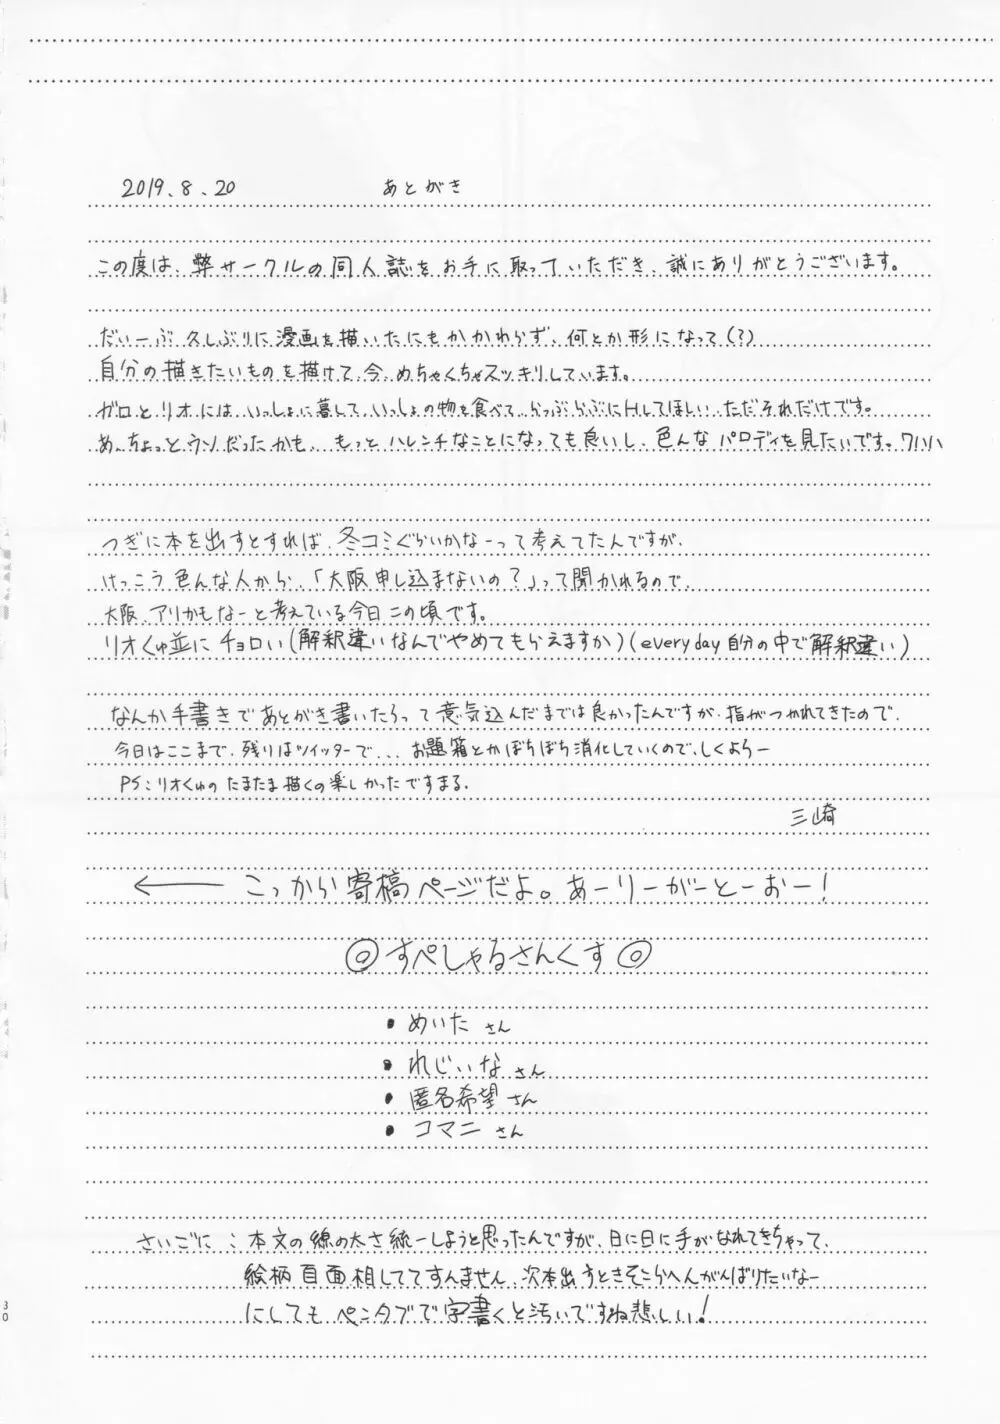 2019.8.20 あとがき
この度は、弊サークルの同人誌をお手に取っていただき、誠にありがとうございます。
だいーぶ久しぶりに漫画を描いたにもかかわらず、何とか形になって(?)
自分の描きたいものを描けて、今、めちゃくちゃスッキリしています。
ガロとリオにはいっしょに暮して、いっしょの物を食べて、らっぶらぶにHしてほしい、ただそれだけです。
あ、ちょっとウソだったかも、もっとハレンチなことになっても良いし、色んなパロディを見たいです。ワハハ
つぎに本を出すとすれば、冬コミぐらいかなーって考えてたんですが、
けっこう色んな人から、「大阪申し込まないの?」って聞かれるので、
大阪、アリかもなーと考えている今日この頃です。
リオくゅ並にチョロい(解釈違いなんでやめてもらえますか)(everyday自分の中で解釈違い)
なんか手書きであとがき書いたろって意気込んだまでは良かったんですが、指がつかれてきたので、
今日はここまで、残りはツイッターで...お題箱とかぼちぼち消化していくので、しくよろー
PS:リオくゅのたまたま描くの楽しかったですまる.
三崎
← こっから寄稿ページだよ。あーりーがーとーおー!
◎すぺしゃるさんくす◎
・めいたさん
・れじぃなさん
・匿名希望さん
・コマニさん
さいごに:本文の線の太さ統一しようと思ったんですが、日に日に手がなれてきちゃって、
絵柄百面相しててすんません、次本出すときそこらへんがんばりたいなー
にしてもペンタブで字書くと汚いですね悲しい!
30